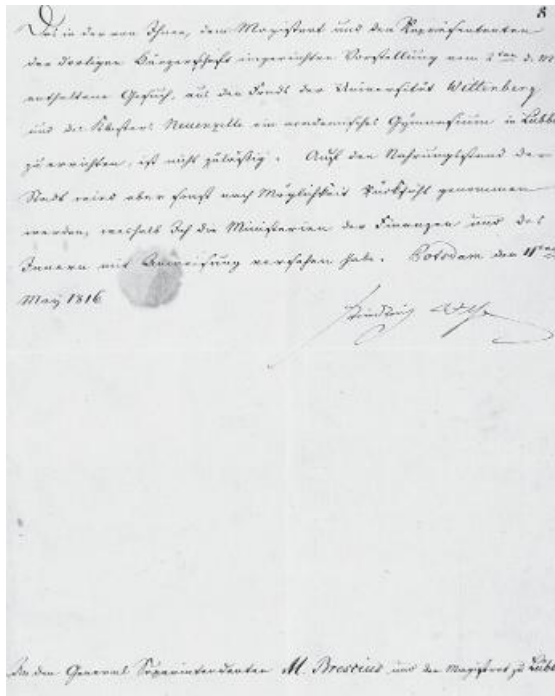 8
Das in der von Ihnen, dem Magistrat und den Repräsentanten
der dortigen Bürgerschaft eingereichten Vorstellung vom 2ten d. M.
enthaltene Gesuch, aus den Fonds der Universität Wittenberg
und des Klosters Neuenzelle ein academisches Gymnasium in Lübb
zu errichten, ist nicht zuläßig. Auf den Nahrungsstand der
Stadt wird aber sonst nach Möglichkeit Rücksicht genommen
werden, weshalb Ich die Ministerien der Finanzen und des
Innern mit Anweisung versehen habe. Potsdam den 11ten
May 1816
Friedrich Wilh
An den General Superintendenten M. Brescius und den Magistrat zu Lübb